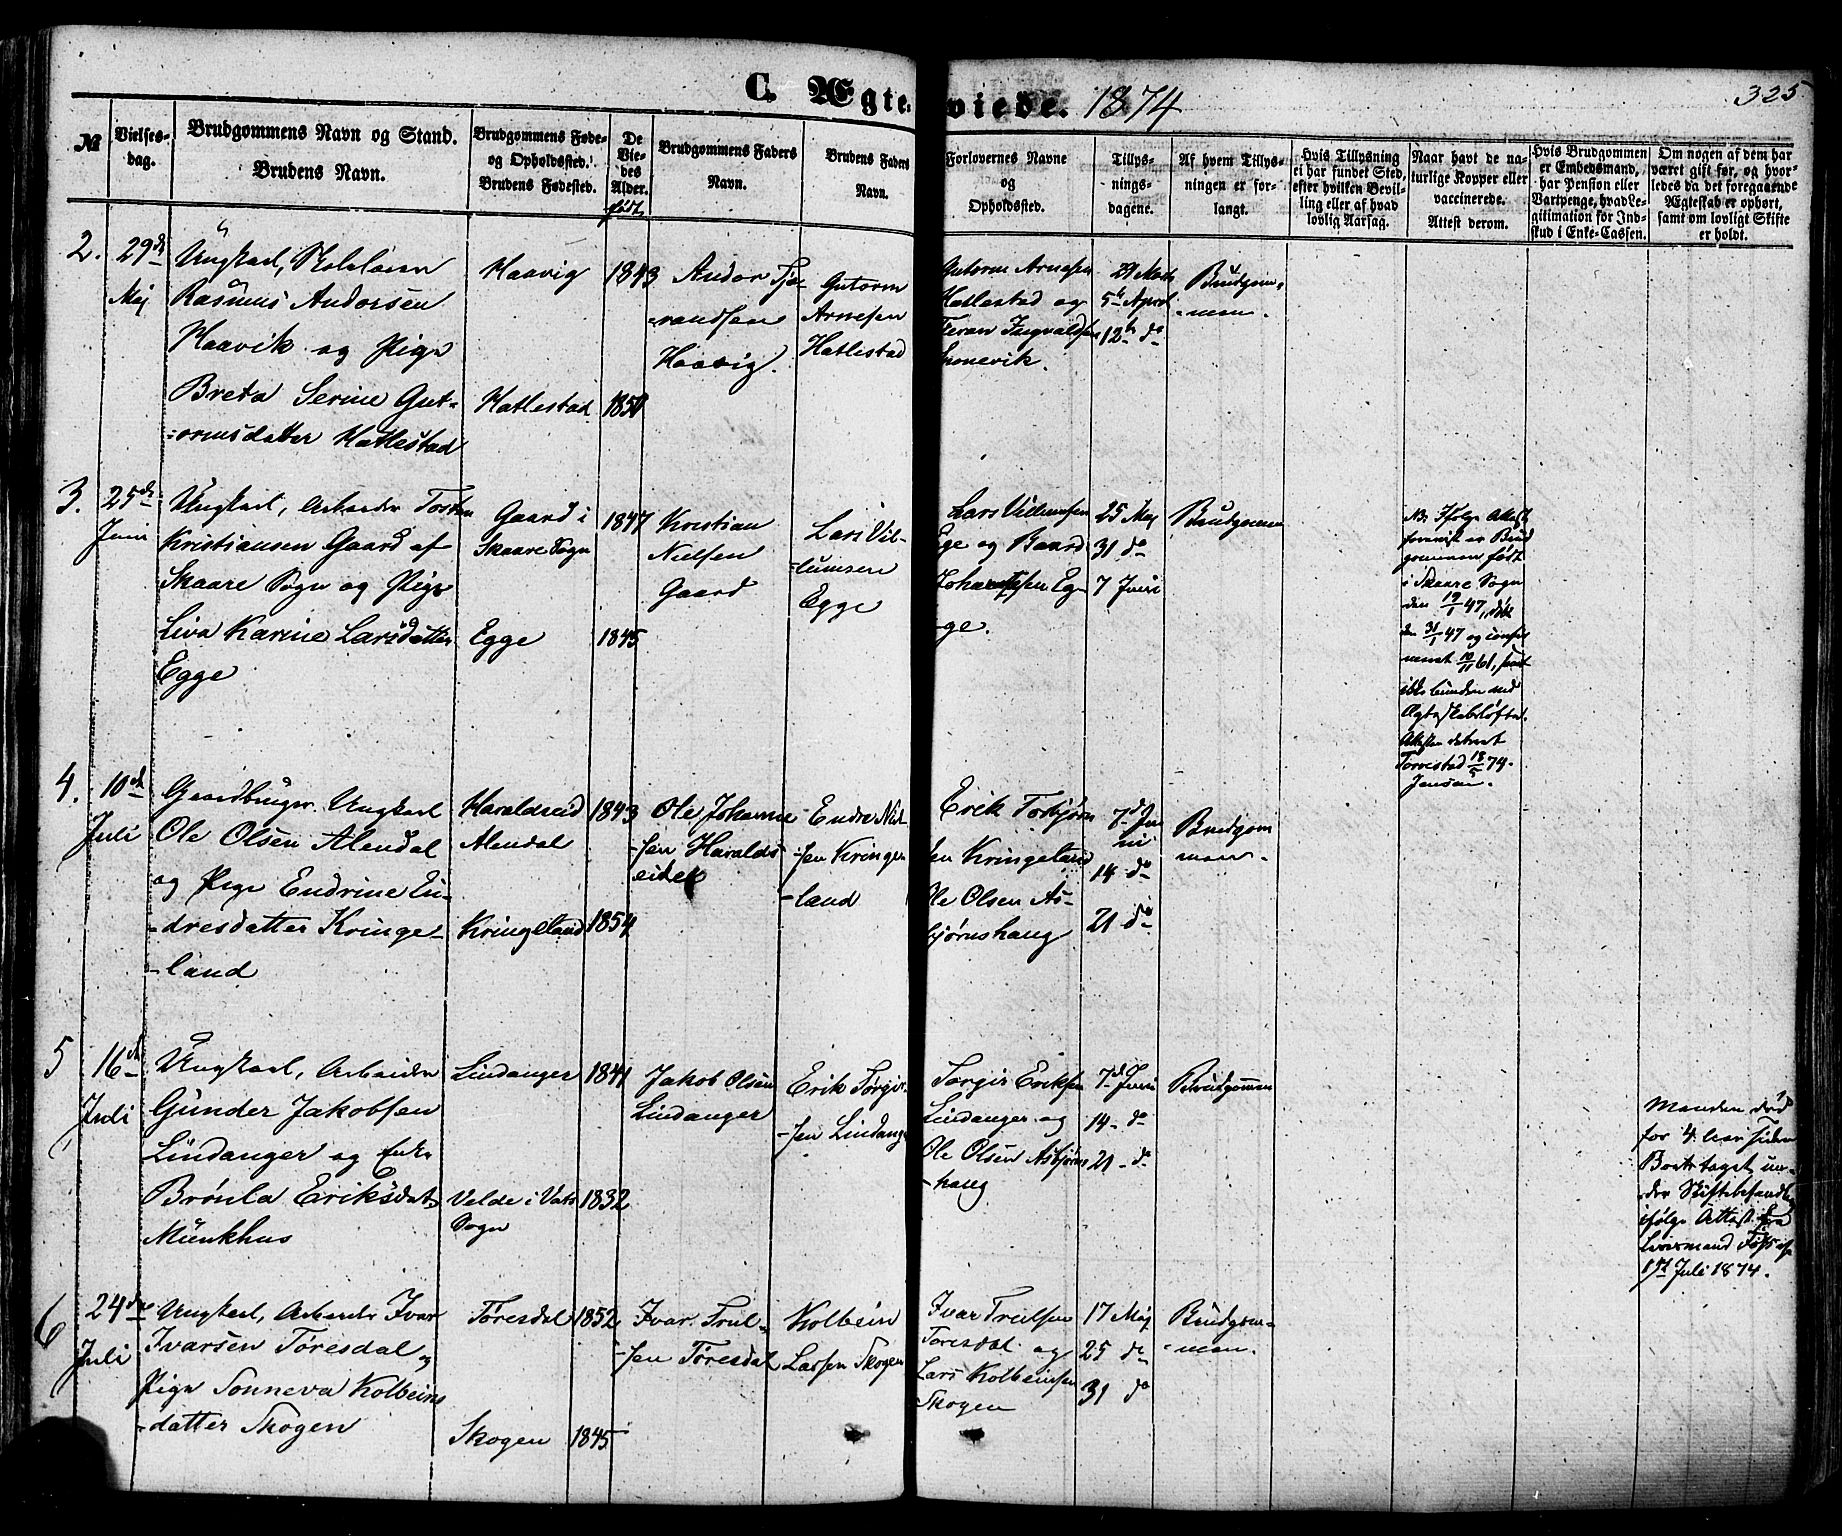 C. Ægteviede. 1874
325
№
Vielsesdag.
Brudgommens Navn og Stand.
Brudens Navn.
Brudgommens Føde-
og Opholdssted.
Brudens Fødested.
De
Vie-
des
Alder.
født
Brudgommens Faders
Navn.
Brudens Faders
Navn.
Forlovernes Navne
og
Opholdssted.
Tillys-
nings-
dagene.
Af hvem Tillys-
ningen er for-
langt.
Hvis Tillysning
ei har fundet Sted,
efter hvilken Bevil-
ling eller af hvad
lovlig Aarsag.
Naar havt de na-
turlige Kopper eller
vaccinerede.
Attest derom.
Hvis Brudgommen
er Embedsmand,
har Pension eller
Vartpenge, hvad Le-
gitimation for Ind-
skud i Enke-Cassen.
Om nogen af dem har
været gift før, og hvor-
ledes da det foregaaende
Ægteskab er ophørt,
samt om lovligt Skifte
er holdt.
2.
29de
Mej
Ungkarl,
Rasmus Andorsen
Haavik og Pige
Breta Serine Gut-
-ormsdatter Hatlestad
Haavig
Hatlestad
1843
Andor Tjø-
-randsen
Haavig.
Gutorm
Arnesen
Hatlestad
Gutorm Arnesen
Hatlestad og
Ingvaldsen
29 Marts
5te April
12te do
Brudgom-
-men.
3.
25de
Juni
Ungkarl, Arbeider
Kristiansen Gaard af
Skaare Sogn og Pige
Liva Karine Larsdatter
Egge
Gaard i
Skaare Sogn
Egge
1847
1845
Kristian
Nielsen
Gaard
Lars Vil-
-lumsen
Egge
Lars Villumsen
Ege og Baard
Johannessen Eg-
-ge.
25 Mej
31 do
7 Juni
Brudgommen
Nb. Ifølge Attest
er Brud
gommen født
i Skaare Sogn
den 19/1 47, døbt
den 31/1 47 og confir
meret, samt
ikke bunden ved
Ægteskabsløfte.
Attesten dateret
Torvestad 18/5 74.
Jensen.
4.
10de
Juli
Gaardbruger Ungkarl
Ole Olsen Alendal
og Pige Endrine En-
-dresdatter Kringe-
-land
Haraldseid
Alendal
Kringeland
1843
1854
Ole Johanne
-sen Haralds
eidet
Endre Niel-
-sen Kringe
-land
Erik Torbjørn
sen Kringeland
Ole Olsen As-
bjørnshaug
7de Ju
ni
14 do
21 do
Brudgom
men.
5
16de
Juli
Ungkarl, Arbeider
Gunder Jakobsen
Lindanger og Enke
Brønla Eriksdat.
Munkhus
Lindanger
Velde i Vats
Sogn
1841
1832
Jakob Olsen
Lindanger
Erik Tørgir-
-sen Lindang
Torgir Eriksen
Lindanger og
Ole Olsen Asbjørns
-haug
7de Juni
14 - do
21 - do
Brudgommen
Manden død
for 4 Aar siden
Boet taget un-
-der Skiftebehandling
ifølge Attest fra
Lensmand
Juli 1874.
6
24de
Juli
Ungkarl, Arbeider Ivar
Ivarsen Tøresdal og
Pige Sonneva Kolbeins
-datter Skogen
Tøresdal
Skogen
1852
1845
Ivar Truls-
-sen Tøresdal
Kolbein
Larsen Skogen
Ivar Trulsen
Toresdal og
Lars Kolbeinsen
Skogen
17 Mej
25 do
31 do
Brudgom-
-men.